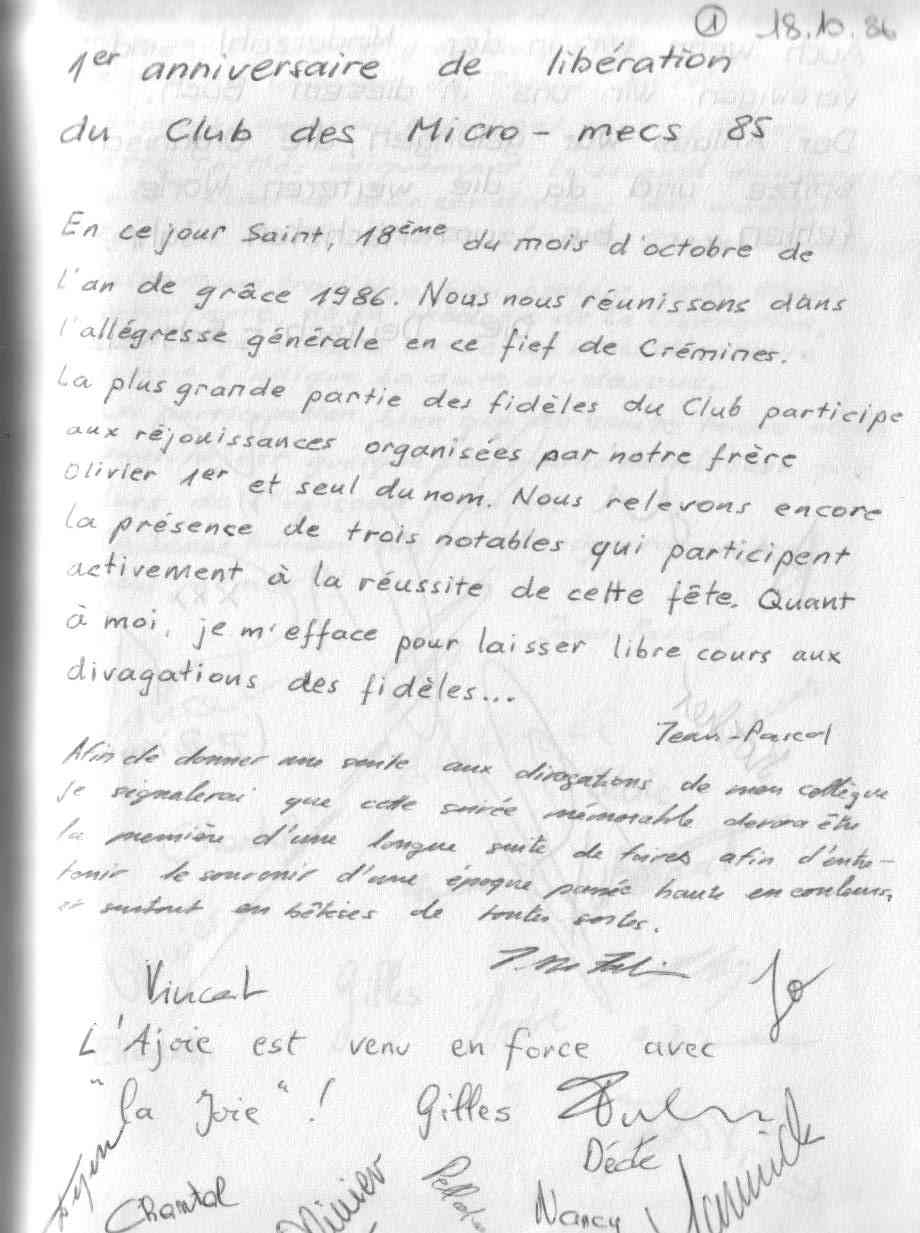 ① 18.10.86
1er anniversaire de libération
du Club des Micro-mecs 85
En ce jour Saint, 18ème du mois d'octobre de
l'an de grâce 1986. Nous nous réunissons dans
l'allégresse générale en ce fief de Crémines.
La plus grande partie des fidèles du Club participe
aux réjouissances organisées par notre frère
Olivier 1er et seul du nom. Nous relevons encore
la présence de trois notables qui participent
activement à la réussite de cette fête. Quant
à moi, je m'efface pour laisser libre cours aux
divagations des fidèles...
Jean-Pascal
Afin de donner une suite aux divagations de mon collègue
je signalerai que cette soirée mémorable devra être
la première d'une longue suite de foires afin d'entre-
tenir le souvenir d'une époque passée haute en couleurs,
et surtout en bêtises de toutes sortes.
Vincent
Jo
L'Ajoie est venu en force avec
"la Joie"! Gilles
Décte
Chantal Olivier Nancy Yannick